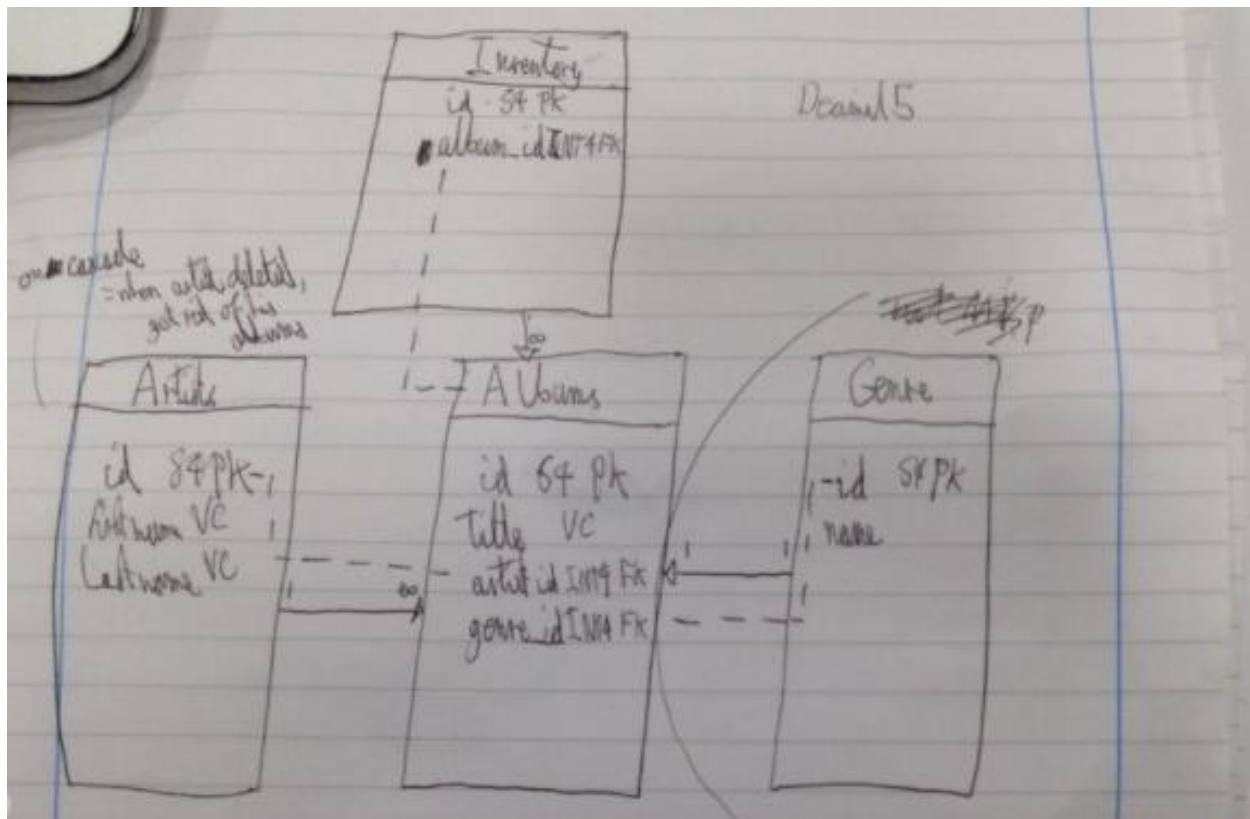 Inventory
id S4 PK
album_id INT4 FK
on cascade
= when artist deleted,
get rid of his
albums
Artists
id S4 PK
Firstname VC
Lastname VC
∞
∞
Albums
id S4 PK
Title VC
artist id INT4 FK
genre_id INT4 FK
1
1
1
Genre
id S4 PK
name